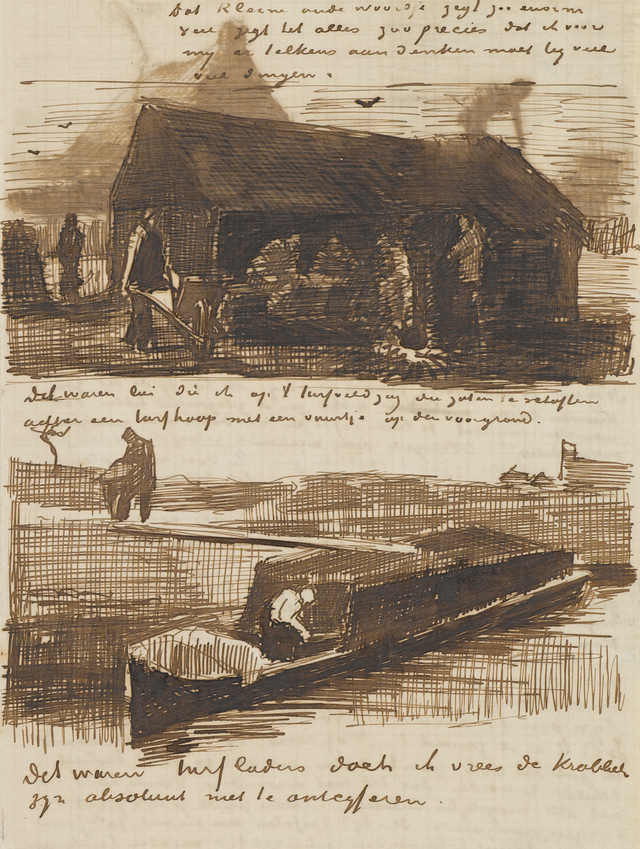 Dat kleene oude woordje zegt zoo enorm
veel zegt het alles zoo precies dat ik voor
my er telkens aan denken moet by veel
veel dingen.
Dat waren lui die ik op 't turfveld zag die zaten te schoften
achter een turfhoop met een vuurtje op den voorgrond.
Dit waren turfladers doch ik vrees de krabbels
zyn absoluut niet te ontcyferen.